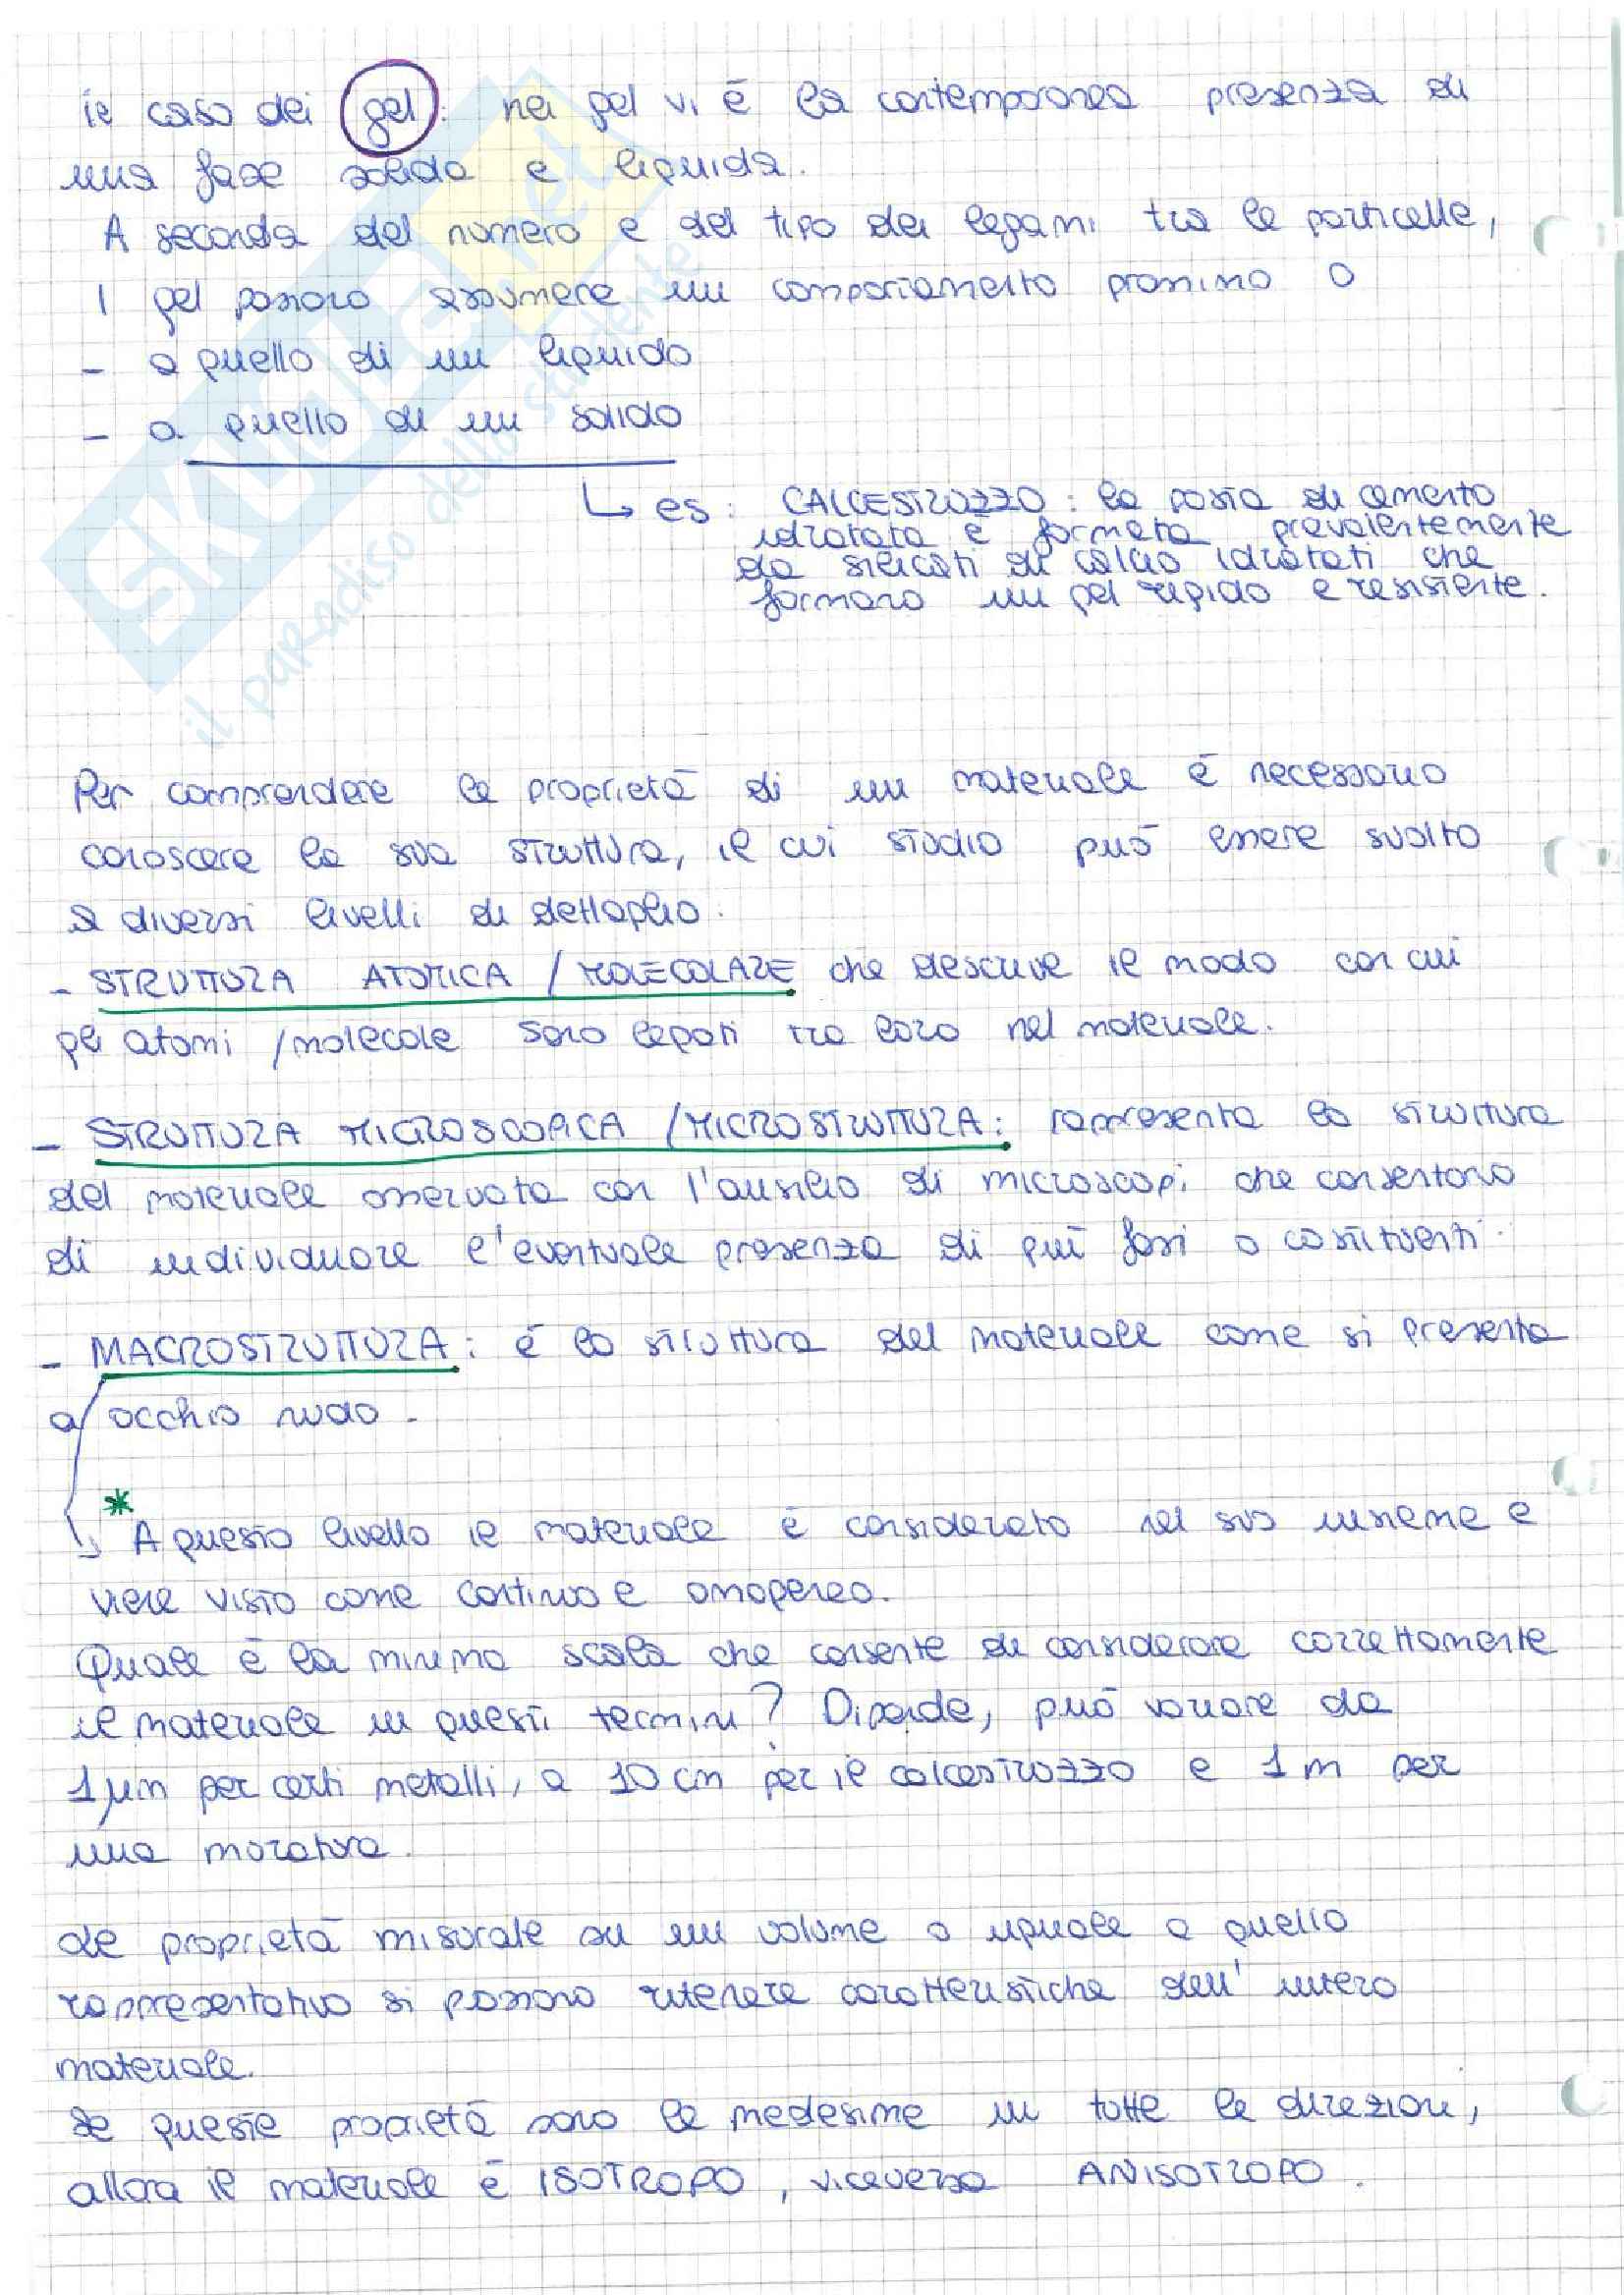 il caso dei gel: nei gel vi è la contemporanea presenza di
una fase solida e liquida.
A seconda del numero e del tipo dei legami tra le particelle,
i gel possono assumere un comportamento prossimo o
- a quello di un liquido
- a quello di un solido
↳ es: CALCESTRUZZO: la pasta di cemento
idratata è formata prevalentemente
da silicati di calcio idratati che
formano un gel rigido e resistente.
SKUOLA.net
il paradiso dello studente
Per comprendere le proprietà di un materiale è necessario
conoscere la sua struttura, il cui studio può essere svolto
a diversi livelli di dettaglio:
- STRUTTURA ATOMICA / MOLECOLARE che descrive il modo con cui
gli atomi / molecole sono legati tra loro nel materiale.
- STRUTTURA MICROSCOPICA / MICROSTRUTTURA: rappresenta la struttura
del materiale osservata con l'ausilio di microscopi che consentono
di individuare l'eventuale presenza di più fasi o costituenti.
- MACROSTRUTTURA: è la struttura del materiale come si presenta
a occhio nudo.
* ↳ A questo livello il materiale è considerato nel suo insieme e
viene visto come continuo e omogeneo.
Quale è la minima scala che consente di considerare correttamente
il materiale in questi termini? Dipende, può variare da
1 μm per certi metalli, a 10 cm per il calcestruzzo e 1 m per
una muratura.
Le proprietà misurate su un volume o uguale a quello
rappresentativo si possono ritenere caratteristiche dell'intero
materiale.
Se queste proprietà sono le medesime in tutte le direzioni,
allora il materiale è ISOTROPO, viceversa ANISOTROPO.